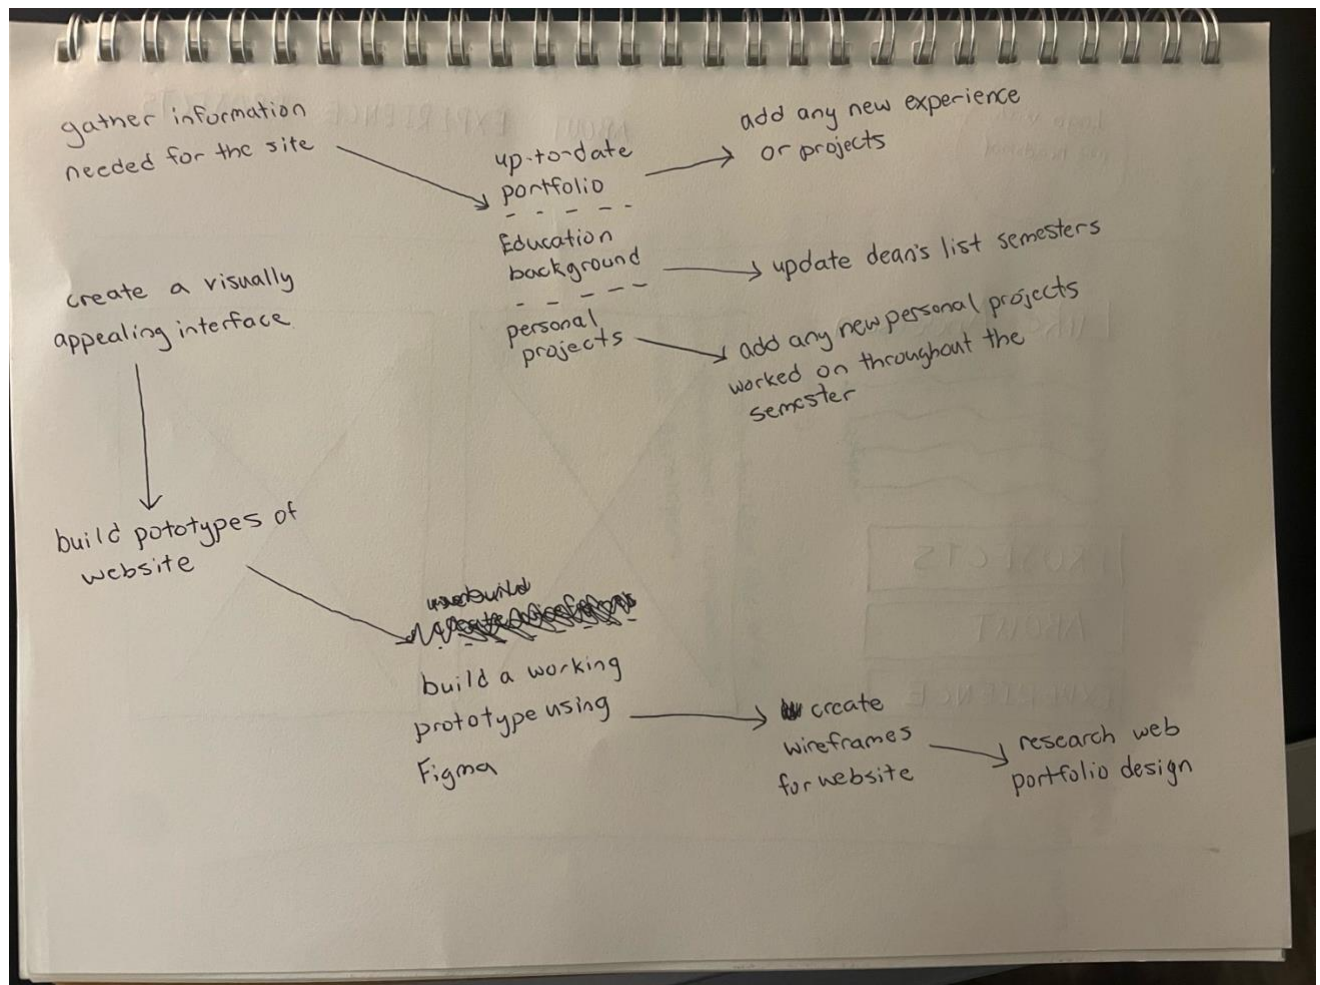 gather information
needed for the site
up-to-date
portfolio
add any new experience
or projects
Education
background
update dean's list semesters
personal
projects
add any new personal projects
worked on throughout the
semester
create a visually
appealing interface
build pototypes of
website
build a working
prototype using
Figma
create
wireframes
for website
research web
portfolio design